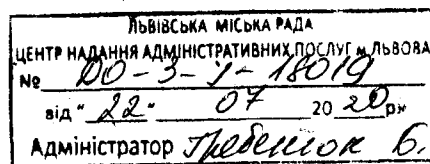 ЛЬВІВСЬКА МІСЬКА РАДА
ЦЕНТР НАДАННЯ АДМІНІСТРАТИВНИХ ПОСЛУГ м. ЛЬВОВА
№ ДО-3-У-18019
від "22" 07 2020 р.
Адміністратор Гребенюк Б.